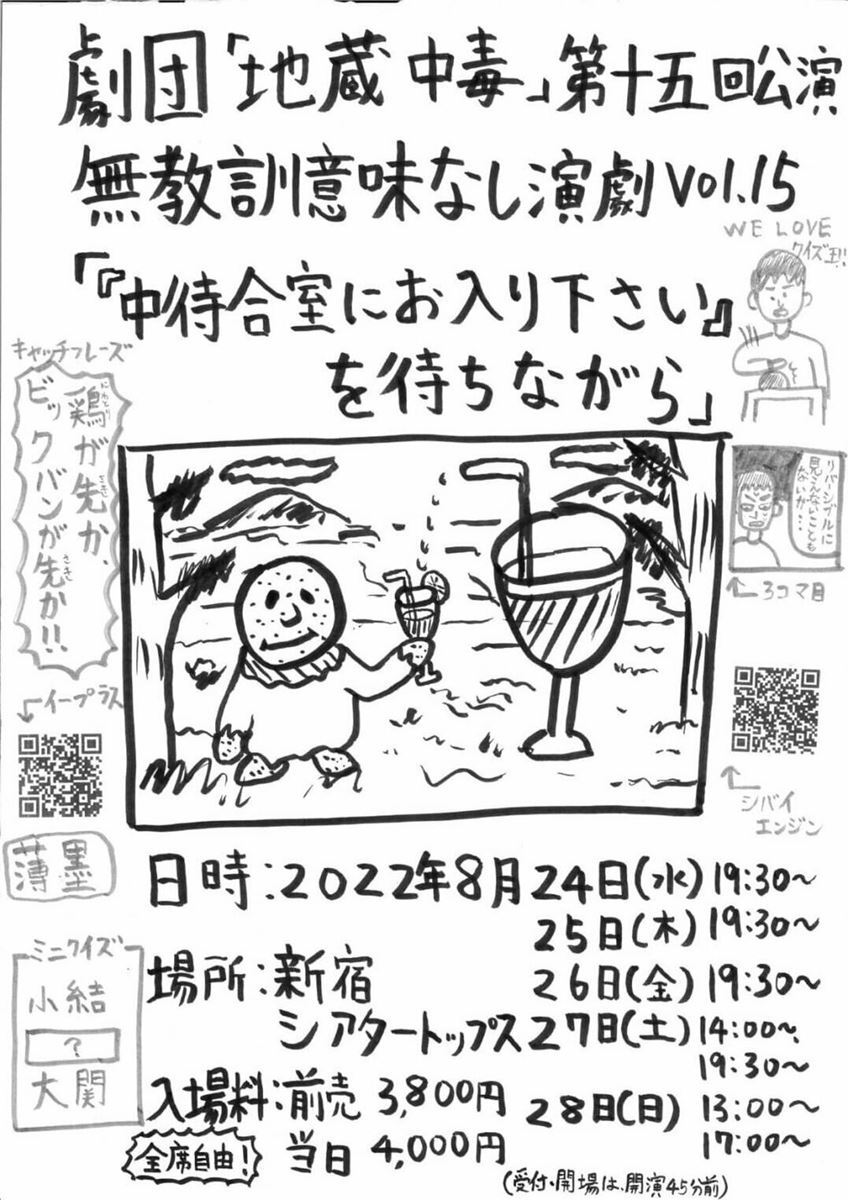 劇団「地蔵中毒」第十五回公演
無教訓意味なし演劇vol.15
「『中待合室にお入り下さい』
を待ちながら」
WE LOVE
クイズ王!!
キャッチフレーズ
鶏が先か、
にわとり
さき
ビックバンが先か!!
さき
リバーシブルに
見えないことも
ないが…
←3コマ目
←イープラス
←シバイ
エンジン
薄墨
ミニクイズ
小結
?
大関
日時:2022年8月24日(水)19:30〜
25日(木)19:30〜
26日(金)19:30〜
27日(土)14:00〜、
19:30〜
28日(日)13:00〜
17:00〜
場所:新宿
シアタートップス
入場料:前売 3,800円
当日 4,000円
全席自由!
(受付・開場は、開演45分前)